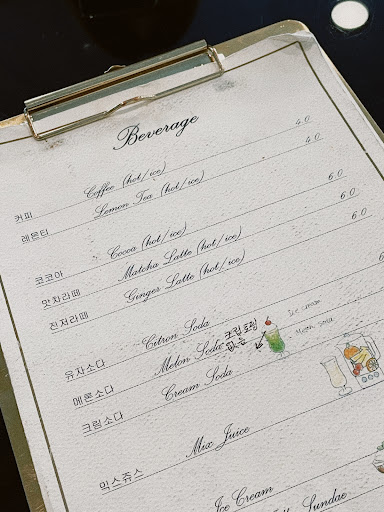 Beverage
커피 Coffee (hot/ice) 4.0
레몬티 Lemon Tea (hot/ice) 4.0
코코아 Cocoa (hot/ice) 6.0
맛차라떼 Matcha Latte (hot/ice) 6.0
진저라떼 Ginger Latte (hot/ice) 6.0
유자소다 Citron Soda
메론소다 Melon Soda 크림토핑 없는
Ice cream
Melon soda
크림소다 Cream Soda
믹스쥬스 Mix Juice
Ice Cream
Sundae